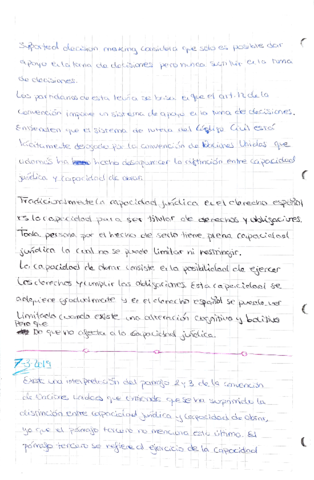 Supported decision making considera que sólo es posible dar
apoyo en la toma de decisiones pero nunca sustituir en la toma
de decisiones.
Los partidarios de esta teoría se basan en que el art. 12 de la
Convención impone un sistema de apoyo a la toma de decisiones.
Entienden que el sistema de tutela del Código Civil está
tácitamente derogado por la convención de Naciones Unidas que
además ha hecho desaparecer la distinción entre capacidad
jurídica y capacidad de obrar.
Tradicionalmente la capacidad jurídica en el derecho español
es la capacidad para ser titular de derechos y obligaciones.
Toda persona por el hecho de serlo tiene plena capacidad
jurídica la cual no se puede limitar ni restringir.
La capacidad de obrar consiste en la posibilidad de ejercer
los derechos y cumplir las obligaciones. Esta capacidad se
adquiere gradualmente y en el derecho español se puede ver
limitada cuando existe una alteración cognitiva y volitiva
pero que
no afecta a la capacidad jurídica.
7-3-2019
Existe una interpretación del párrafo 2 y 3 de la convención
de Naciones Unidas que entiende que se ha suprimido la
distinción entre capacidad jurídica y capacidad de obrar,
ya que el párrafo tercero no menciona esta última. El
párrafo tercero se refiere al ejercicio de la capacidad